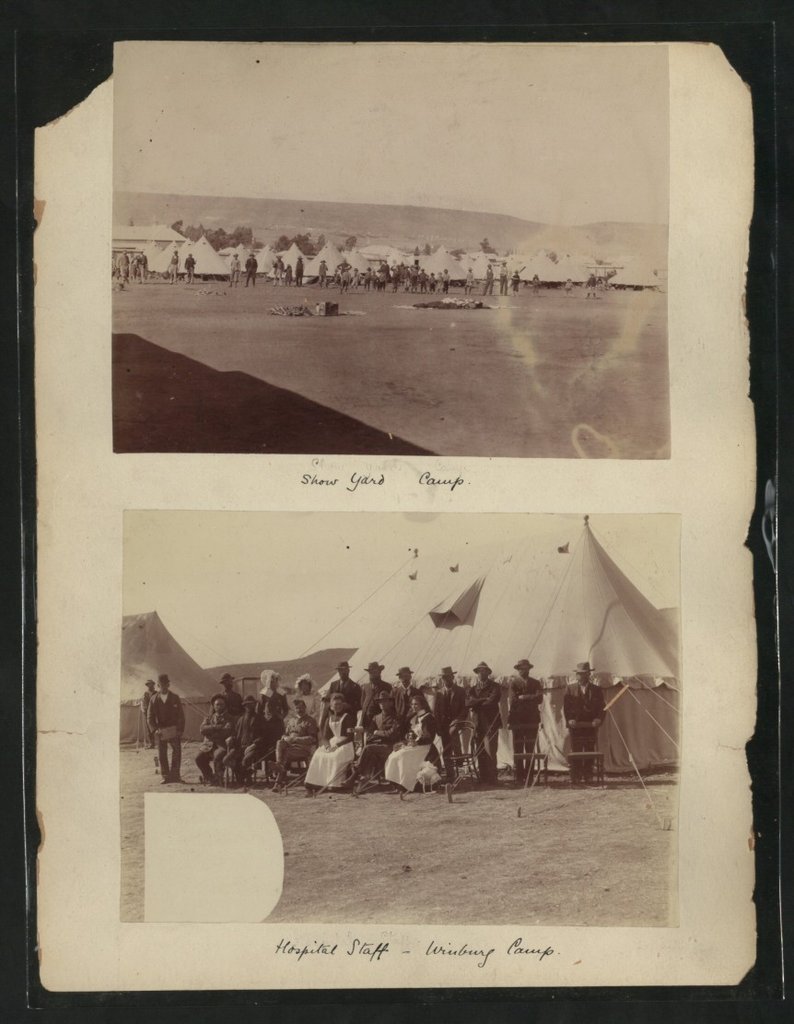 Show Yard Camp.
Hospital Staff - Winburg Camp.